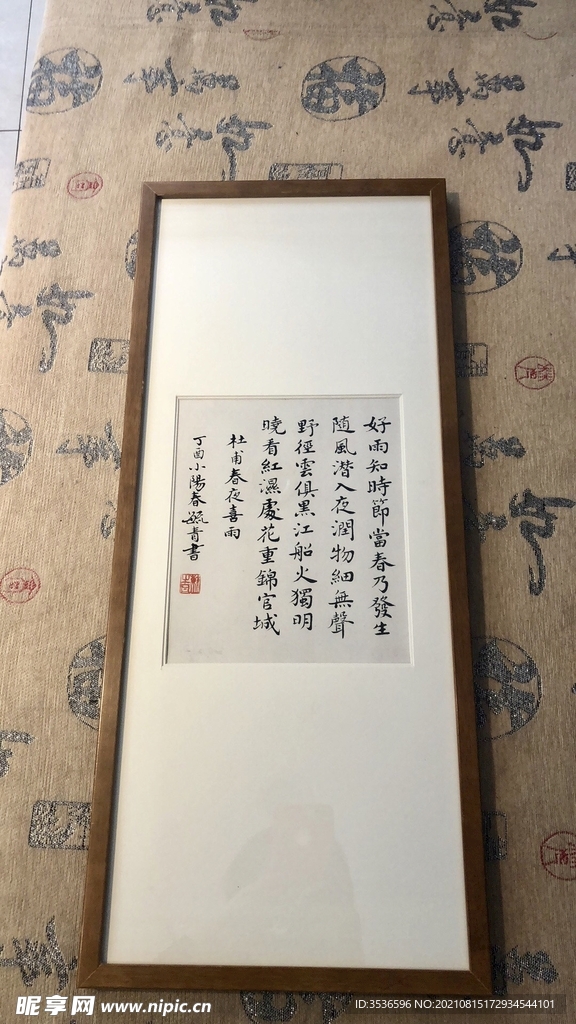 好雨知時節當春乃發生
随風潛入夜潤物細無聲
野徑雲俱黑江船火獨明
曉看紅濕處花重錦官城
杜甫春夜喜雨
丁酉小陽春毓青書
昵享网 www.nipic.cn
ID:3536596 NO:20210815172934544101